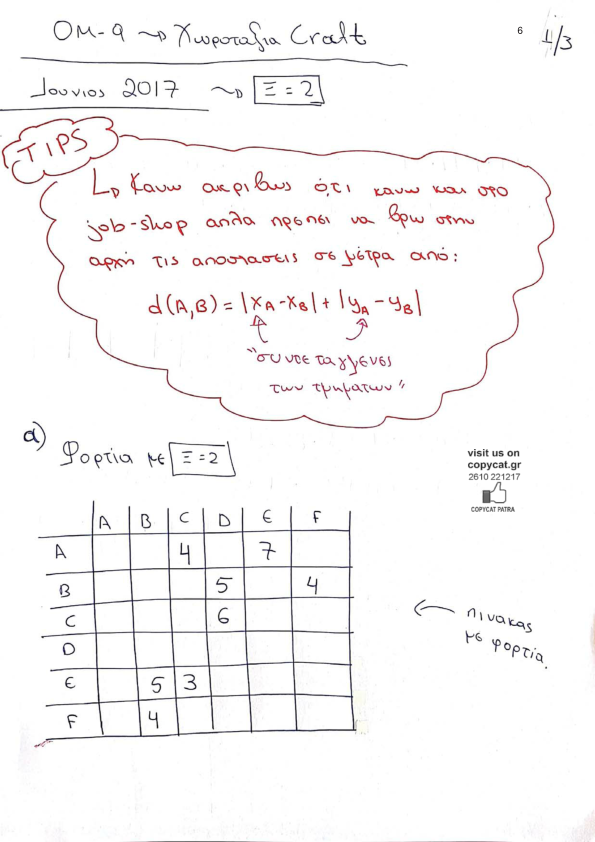 6
1/3
ΟΜ-9 ~> Χωροταξια Craft
Ιουνιος 2017 ~> Ξ=2
TIPS
↳ Κανω ακριβως ό,τι κανω και στο
job-shop απλα πρεπει να βρω στην
αρχή τις αποστασεις σε μέτρα από:
d(A,B) = |XA-XB| + |yA-yB|
"συντεταγμενες
των τμηματων"
α) Φορτία με Ξ=2
visit us on
copycat.gr
2610 221217
COPYCAT PATRA
A B C D E F
A 4 7
B 5 4
C 6
D
E 5 3
F 4
← πινακας
με φορτία.